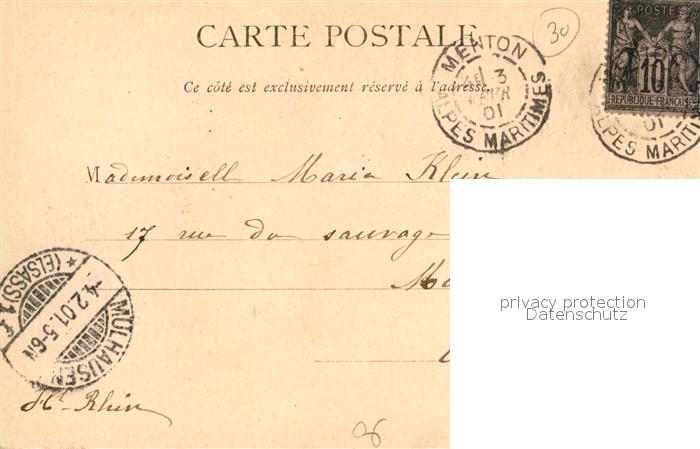 CARTE POSTALE
Ce côté est exclusivement réservé à l'adresse.
30
MENTON
3
FEVR
01
ALPES MARITIMES
10
REPUBLIQUE FRANÇAISE
01
ALPES MARIT
Mademoiselle Maria Klein
17 rue du sauvage
privacy protection
Datenschutz
MÜLHAUSEN
-4.2.01.5-6N
* (ELSASS) 1
Ht Rhin